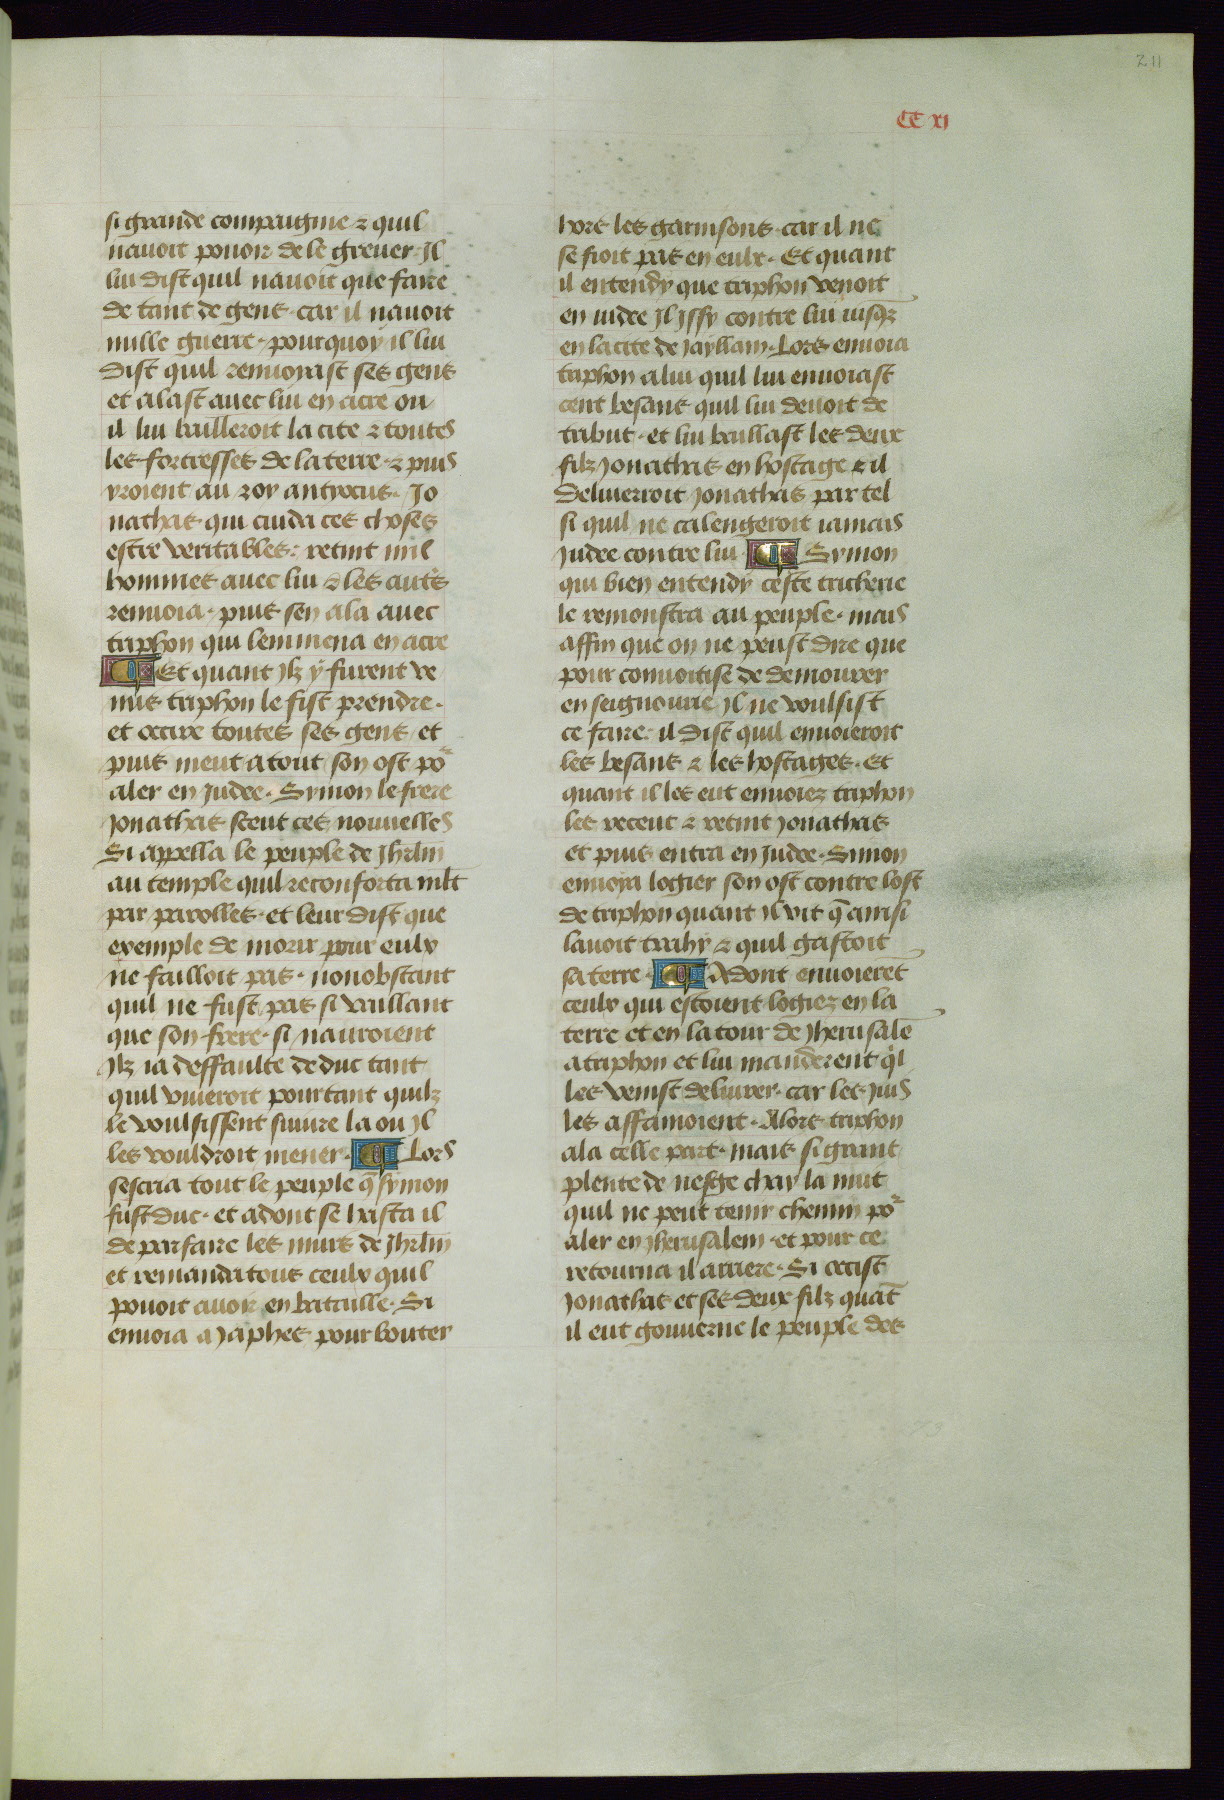 211
CC xj
si grande compaignie ⁊ quil
nauoit pouoir de le greuer. Il
lui dist quil nauoit que faire
de tant de gens. car il nauoit
nulle guerre. pourquoy il lui
dist quil renuoyast ses gens
et alast auec lui en acre ou
il lui bailleroit la cite ⁊ toutes
les forteresses de la terre. ⁊ puis
yroient au roy antyocus. Jo
nathas qui cuida ces choses
estre veritables. retint mil
hommes auec lui ⁊ les autˢ
renuoia. puis sen ala auec
triphon qui lemmena en acre
Et quant ilz y furent ve
nus triphon le fist prendre.
et occire toutes ses gens et
puis meut a tout son ost poʳ
aler en Judee. Symon le frere
Jonathas sceut ces nouuelles
Si appella le peuple de Jhrlm̄
au temple quil reconforta mlt̄
par parolles. et leur dist que
exemple de morir pour eulx
ne failloit pas. nonobstant
quil ne fust pas si vaillant
que son frere. si nauroient
ilz ia deffaulte de duc tant
quil viueroit pourtant quilz
le voulsissent suiure la ou il
les vouldroit mener. Lors
sescria tout le peuple q̄ symon
fust duc. et adont se hasta il
de parfaire les murs de Jhrlm̄
et remanda tous ceulx quil
pouoit auoir en bataille. Si
enuoia a Japhes pour bouter
hors les garnisons. car il ne
se fioit pas en eulx. Et quant
il entendy que triphon venoit
en iudee Il yssy contre lui iusqz
en la cite de Jaylliam. Lors enuoia
triphon a lui quil lui enuoiast
cent besans quil lui deuoit de
tribut. et lui baillast les deux
filz Jonathas en hostage ⁊ il
deliuerroit Jonathas par tel
si quil ne calengeroit iamais
Judee contre lui. Symon
qui bien entendy ceste tricherie
le remonstra au peuple. mais
affin que on ne peust dire que
pour conuoitise de demourer
en seignourie il ne voulsist
ce faire. il dist quil enuoieroit
les besans ⁊ les hostages. Et
quant il les eut enuoiez triphon
les receut ⁊ retint Jonathas
et puis entra en Judee. Simon
enuoya logier son ost contre lost
de triphon quant il vit q̄ ainsi
lauoit trahy ⁊ quil gastoit
sa terre. Adont enuoierēt
ceulx qui estoient logiez en la
terre et en la tour de Jherusalē
a triphon et lui manderent q̇l
les venist deliurer. car les Juis
les affamoient. Alors triphon
ala celle part. mais si grant
plente de nesge chay la nuit
quil ne peut tenir chemin poʳ
aler en Jherusalem. et pour ce
retourna il arriere. Si occist
Jonathas et ses deux filz quāt
il eut gouuerne le peuple des